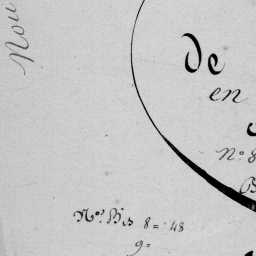 Nou
De
en
N.º 8
N.º Bis 8 = 48
9=